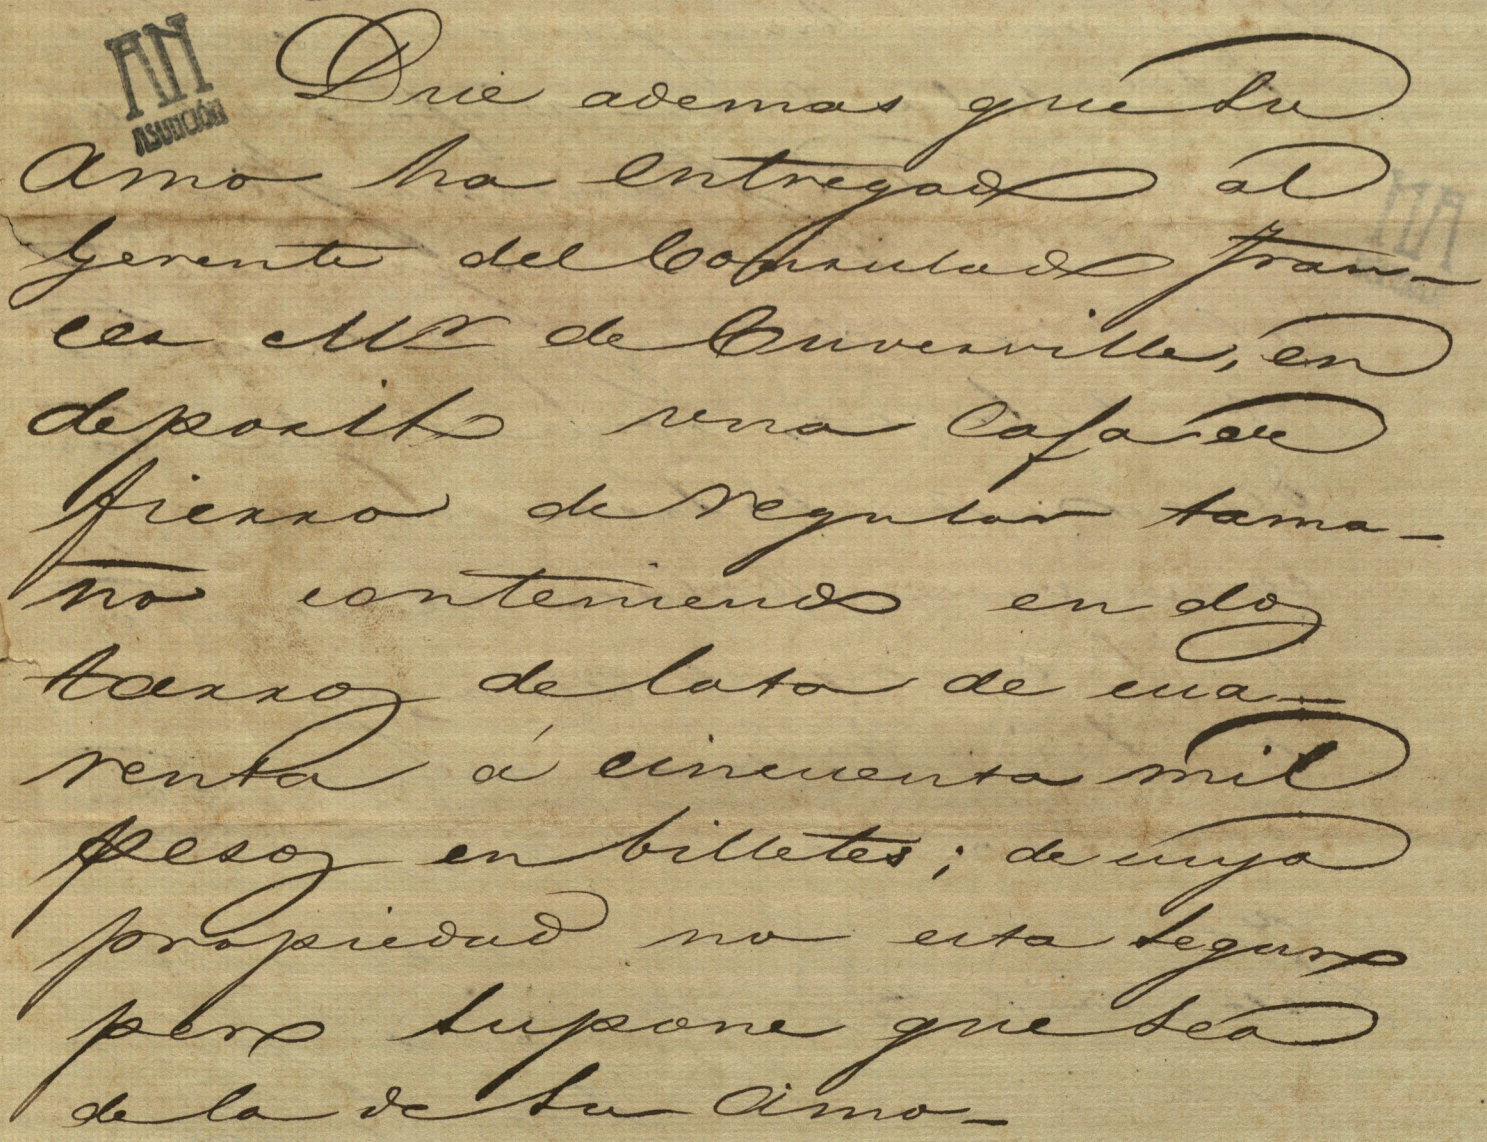 AN
ASUNCIÓN
Dice ademas que su
Amo ha entregado al
Gerente del Consulado Fran-
ces Mr de Cuverville, en
deposito una Caja de
fierro de regular tama-
ño conteniendo en dos
tarros de lata de cua-
renta á cincuenta mil
pesos en billetes; de cuya
propiedad no esta seguro
pero supone que sea
de la de su Amo-